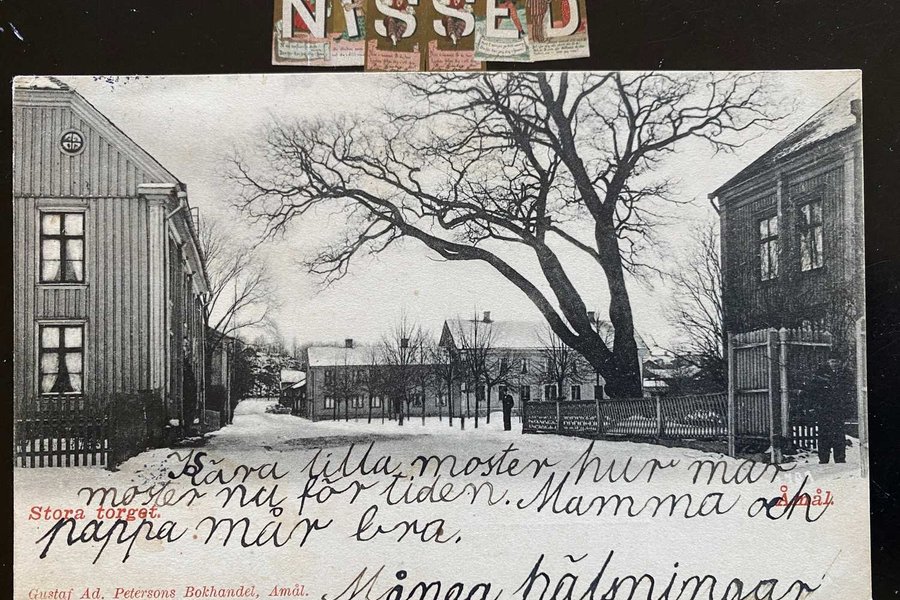 NISSED
Kära lilla moster, hur mår
moster nu för tiden. Mamma och
Stora torget. Åmål.
pappa mår bra.
Gustaf Ad. Petersons Bokhandel, Amål.
Många hälsningar